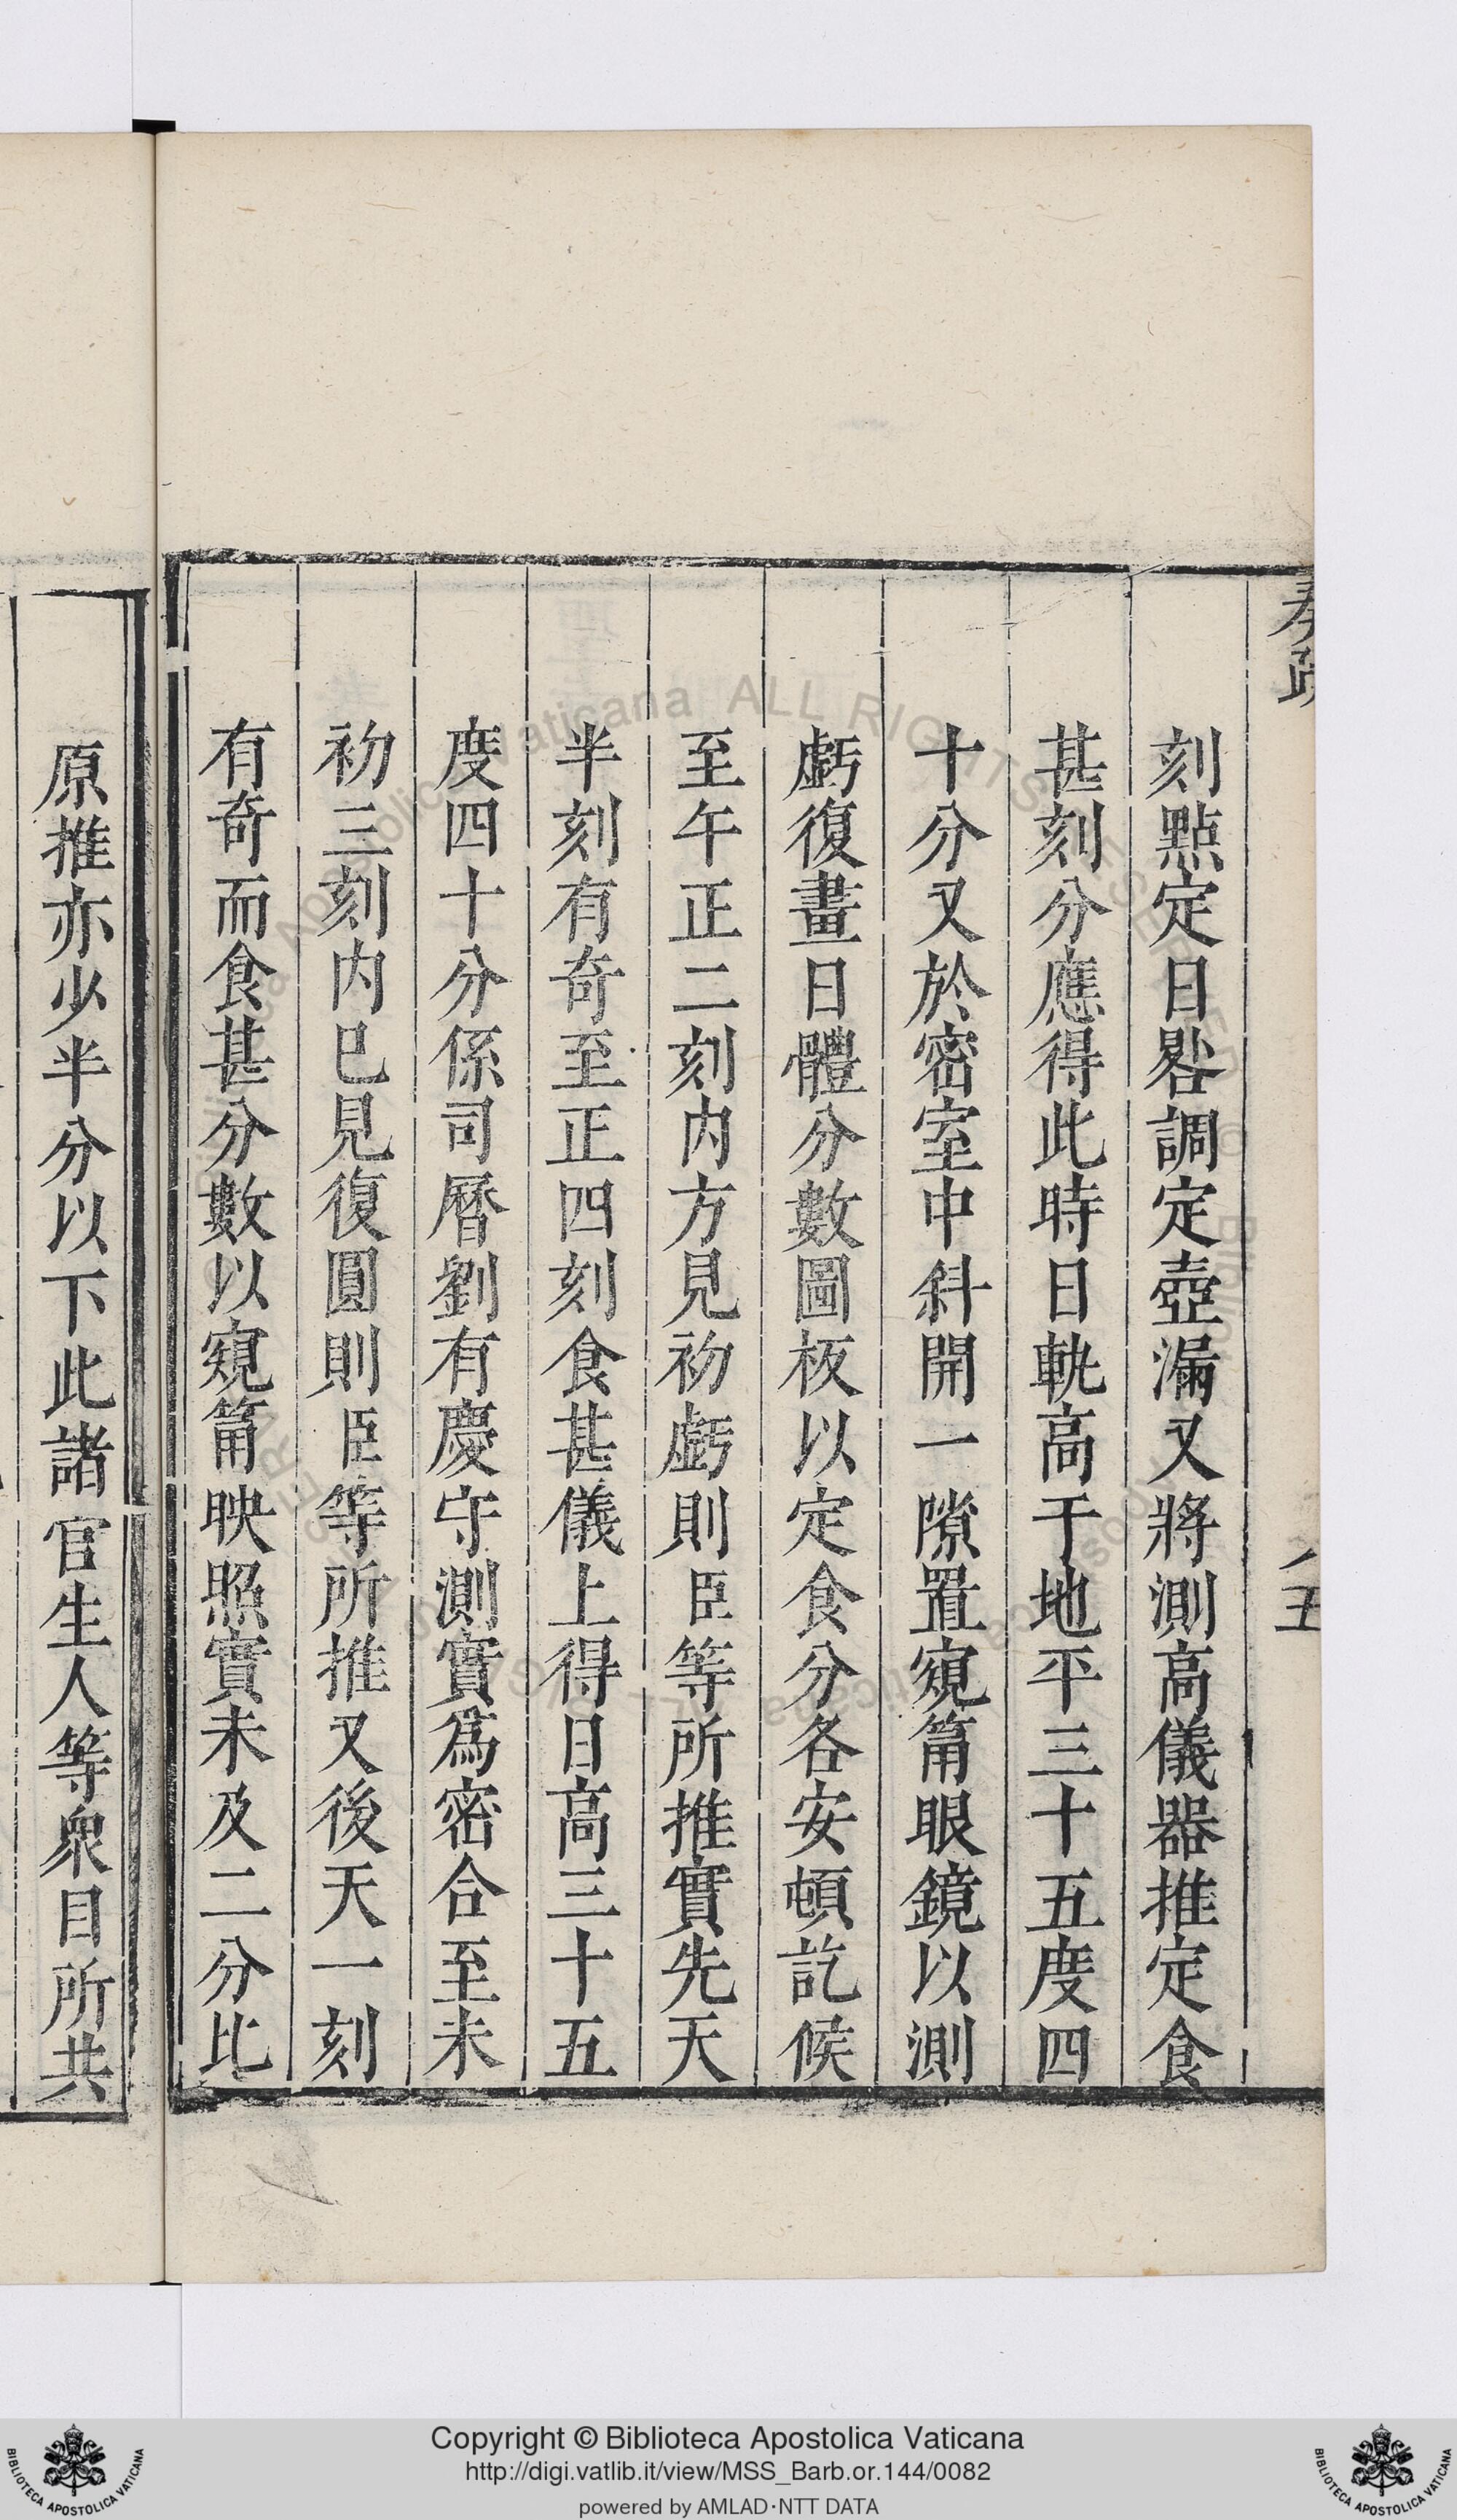 奏疏
五
刻點定日晷調定壺漏又將測高儀器推定食
甚刻分應得此時日軌高于地平三十五度四
十分又於密室中斜開一隙置窺筩眼鏡以測
虧復畫日體分數圖板以定食分各安頓訖候
至午正二刻内方見初虧則臣等所推實先天
半刻有奇至正四刻食甚儀上得日高三十五
度四十分係司曆劉有慶守測實爲密合至未
初三刻内已見復圓則臣等所推又後天一刻
有奇而食甚分數以窺筩映照實未及二分比
原推亦少半分以下此諸官生人等衆目所共
Copyright © Biblioteca Apostolica Vaticana
http://digi.vatlib.it/view/MSS_Barb.or.144/0082
powered by AMLAD·NTT DATA
BIBLIOTECA APOSTOLICA VATICANA
BIBLIOTECA APOSTOLICA VATICANA